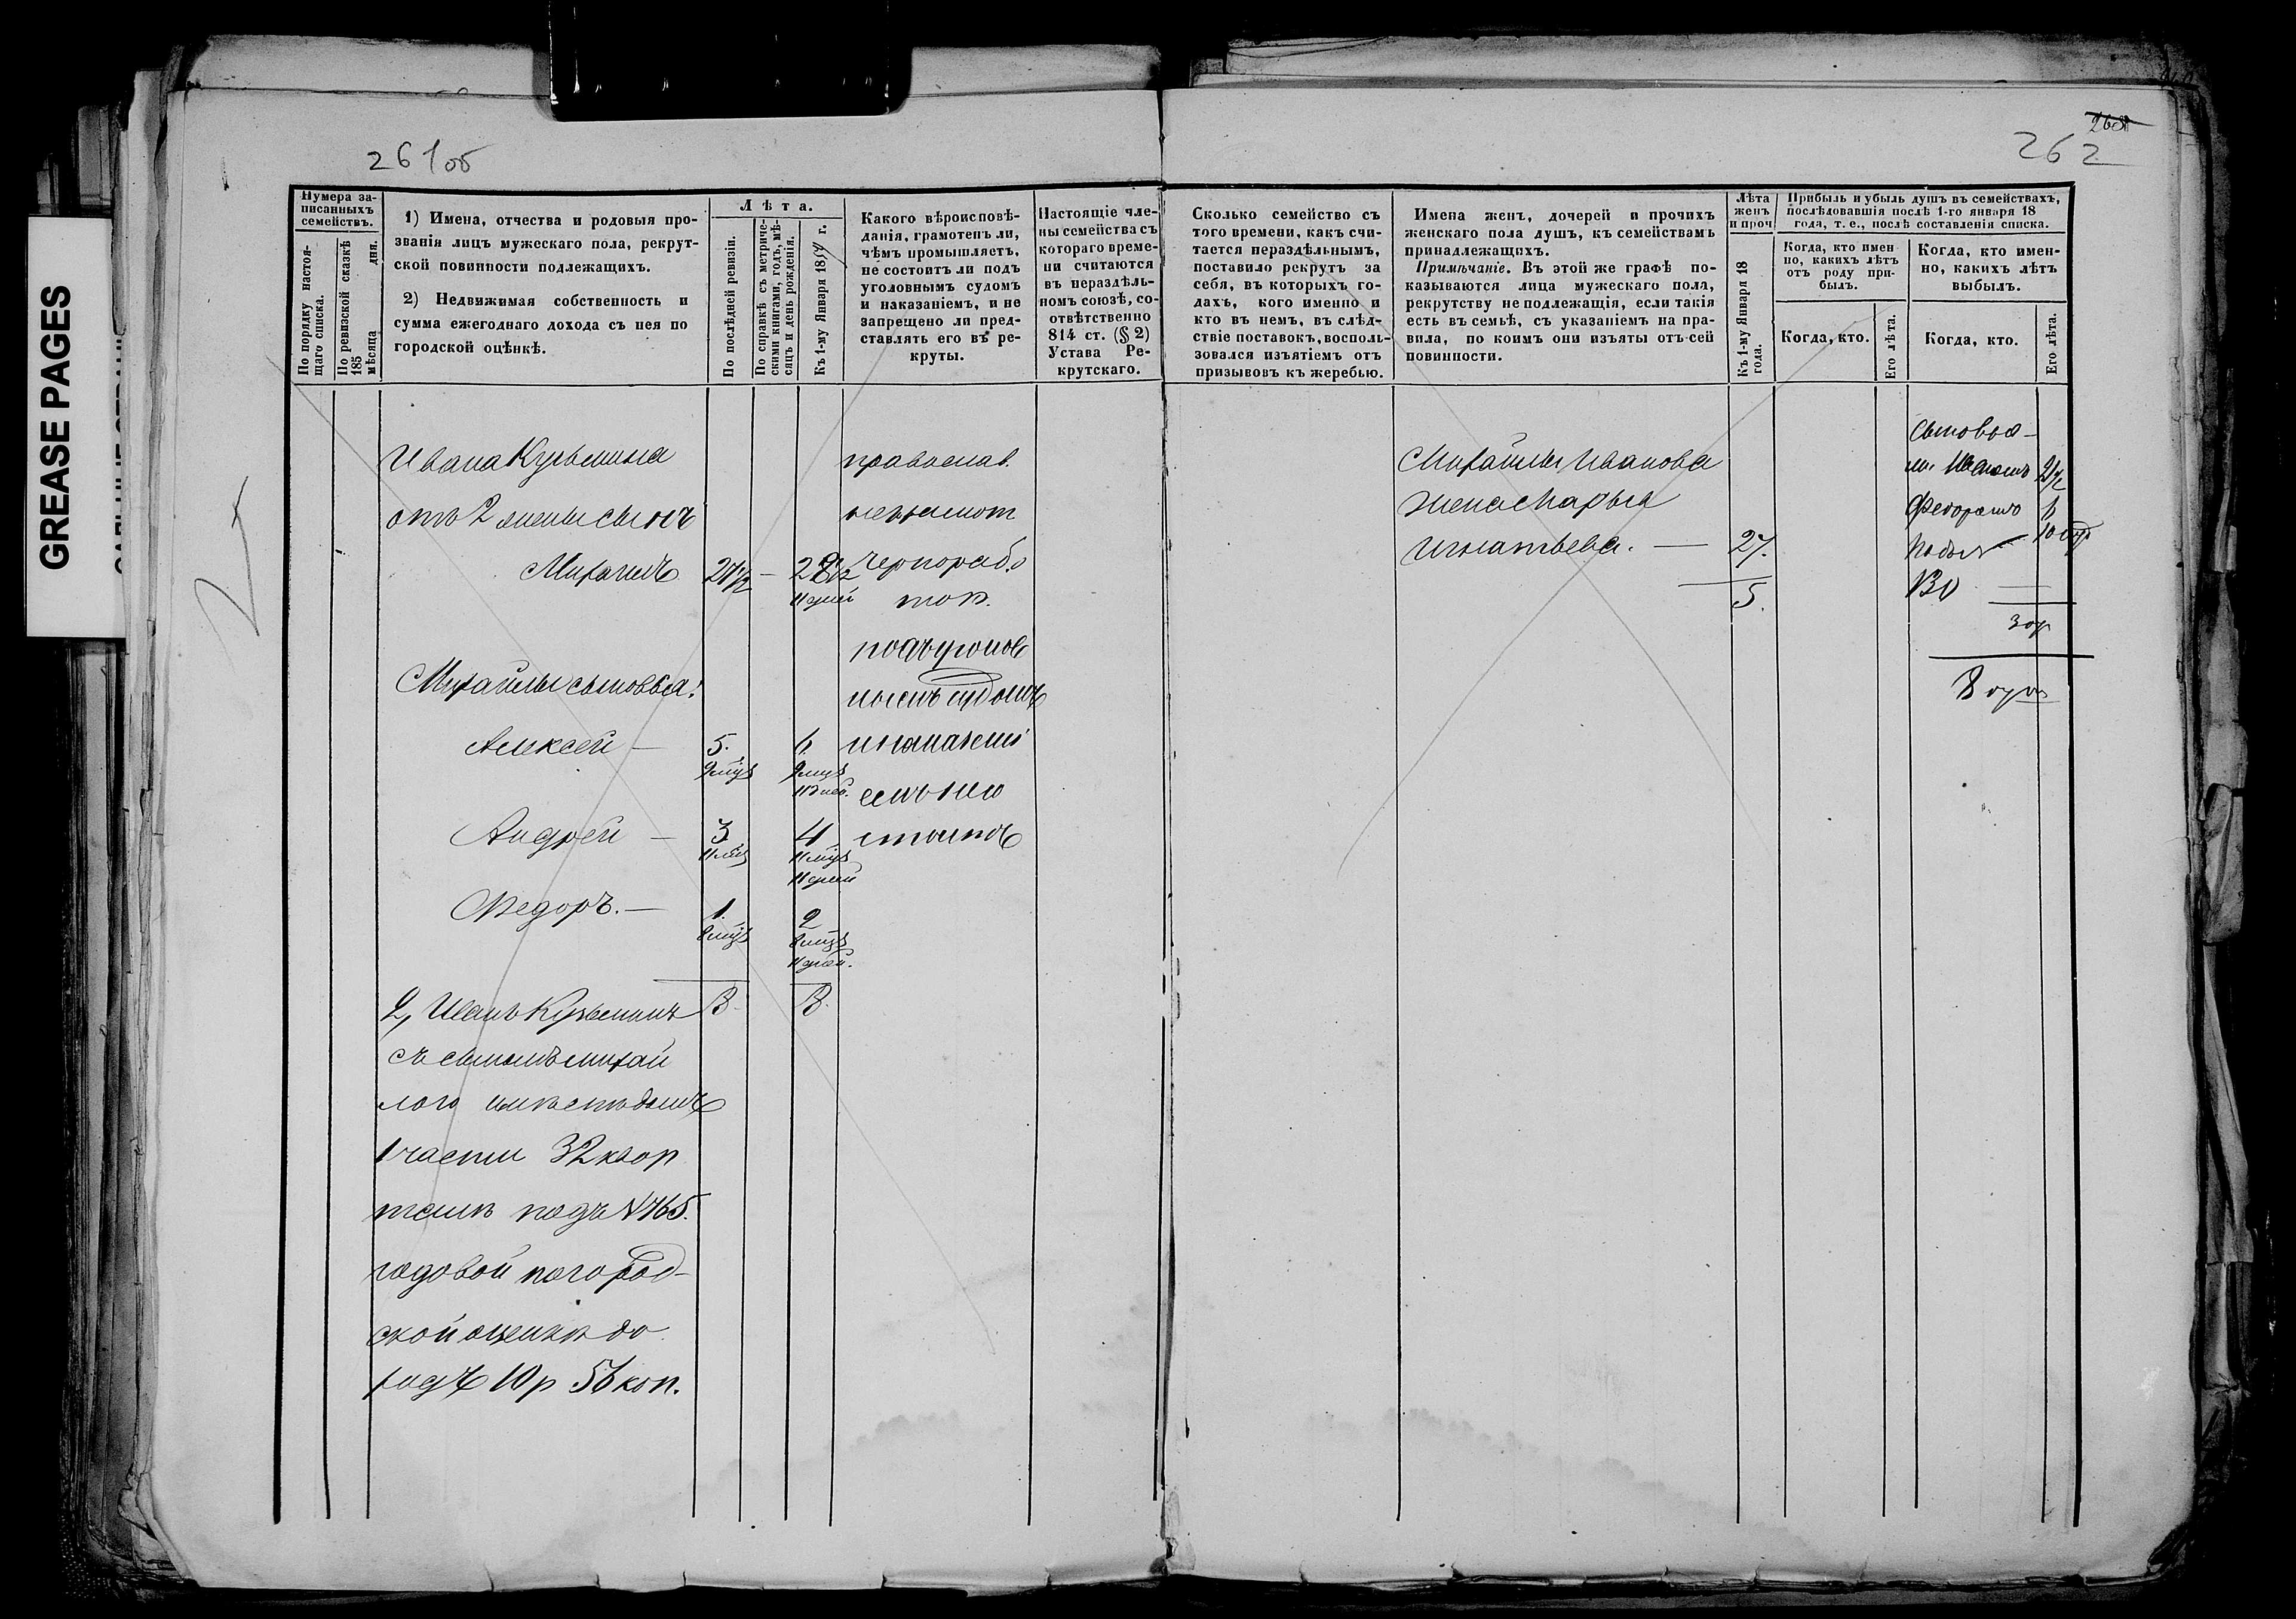 GREASE PAGES
261об
262
Нумера за-
писанныхъ
семействъ.
По порядку настоя-
щаго списка.
По ревизской сказкѣ
185
мѣсяца дня.
1) Имена, отчества и родовыя про-
званія лицъ мужескаго пола, рекрут-
ской повинности подлежащихъ.
2) Недвижимая собственность и
сумма ежегоднаго дохода съ нея по
городской оцѣнкѣ.
Лѣта.
По послѣдней ревизіи.
По справкѣ съ метриче-
скими книгами, годъ, мѣ-
сяцъ и день рожденія.
Къ 1-му Января 1859 г.
Какого вѣроисповѣ-
данія, грамотенъ ли,
чѣмъ промышляетъ,
не состоитъ ли подъ
уголовнымъ судомъ
и наказаніемъ, и не
запрещено ли пред-
ставлять его въ ре-
круты.
Настоящіе чле-
ны семейства съ
котораго време-
ни считаются
въ нераздѣль-
номъ союзѣ, со-
отвѣтственно
814 ст. (§ 2)
Устава Ре-
крутскаго.
Ивана Кузьмина
отъ 2 жены сынъ
Михаилъ 27½ — 28½
11 дней
Михайлы сыновья:
Алексѣй — 5. 6
9 мцъ 9 мцъ
11 дней.
Андрей — 3 4
11 мцъ 11 мцъ
11 дней
Федоръ. — 1. 2
8 мцъ 8 мцъ
11 дней.
8 8.
2, Иванъ Кузьминъ
съ сыномъ Михай
лою имѣетъ домъ
1 части 32 квар
талѣ подъ №765.
годовой по город-
ской оценкѣ до
ходъ 10 р 56 коп.
православ.
неграмот
чернорабо
топ.
подъ уголов
нымъ судомъ
и наказані
емъ не со
стоитъ
Сколько семейство съ
того времени, какъ счи-
тается нераздѣльнымъ,
поставило рекрутъ за
себя, въ которыхъ го-
дахъ, кого именно и
кто въ немъ, въ слѣд-
ствіе поставокъ, восполь-
зовался изъятіемъ отъ
призывовъ къ жеребью.
Имена женъ, дочерей и прочихъ
женскаго пола душъ, къ семействамъ
принадлежащихъ.
Примѣчаніе. Въ этой же графѣ по-
казываются лица мужескаго пола,
рекрутству не подлежащія, если такія
есть въ семьѣ, съ указаніемъ на пра-
вила, по коимъ они изъяты отъ сей
повинности.
Лѣта
женъ
и проч.
Къ 1-му Января 18
года.
Прибыль и убыль душъ въ семействахъ,
послѣдовавшія послѣ 1-го января 18
года, т. е., послѣ составленія списка.
Когда, кто имен-
но, какихъ лѣтъ
отъ роду при-
былъ.
Когда, кто имен-
но, какихъ лѣтъ
выбылъ.
Когда, кто.
Его лѣта.
Когда, кто.
Его лѣта.
Михайлы Иванова
жена Марья
Игнатьева. — 27.
5.
сыновья
8